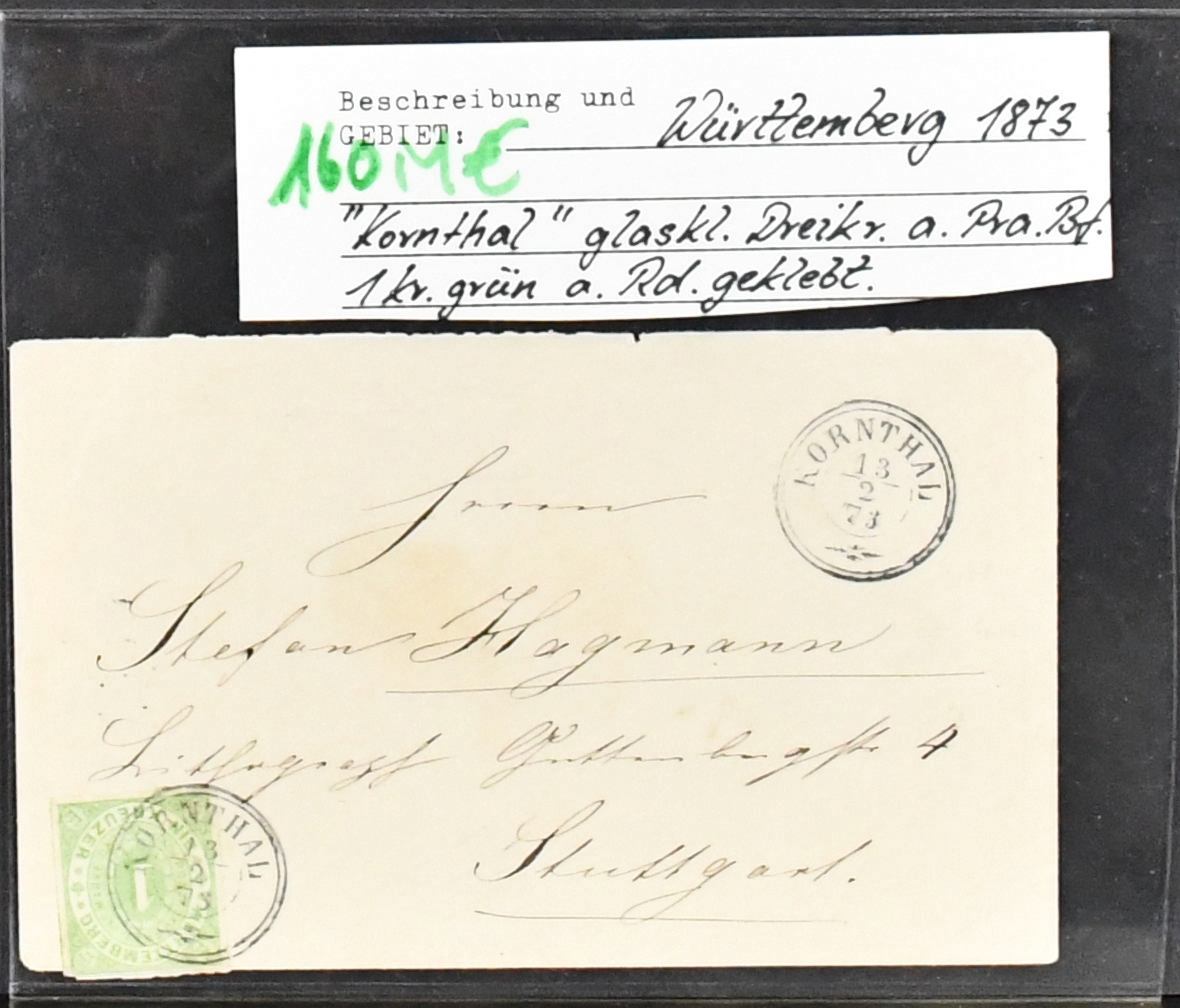 Beschreibung und
GEBIET: Württemberg 1873
160 M €
"Kornthal" glaskl. Dreikr. a. Pra. Bf.
1 kr. grün a. Rd. geklebt.
KORNTHAL
13
2
73
Herrn
Stefan Hagmann
Lithograph Guttenbergstr 4
Stuttgart.
KORNTHAL
13
2
73
KREUZER
1